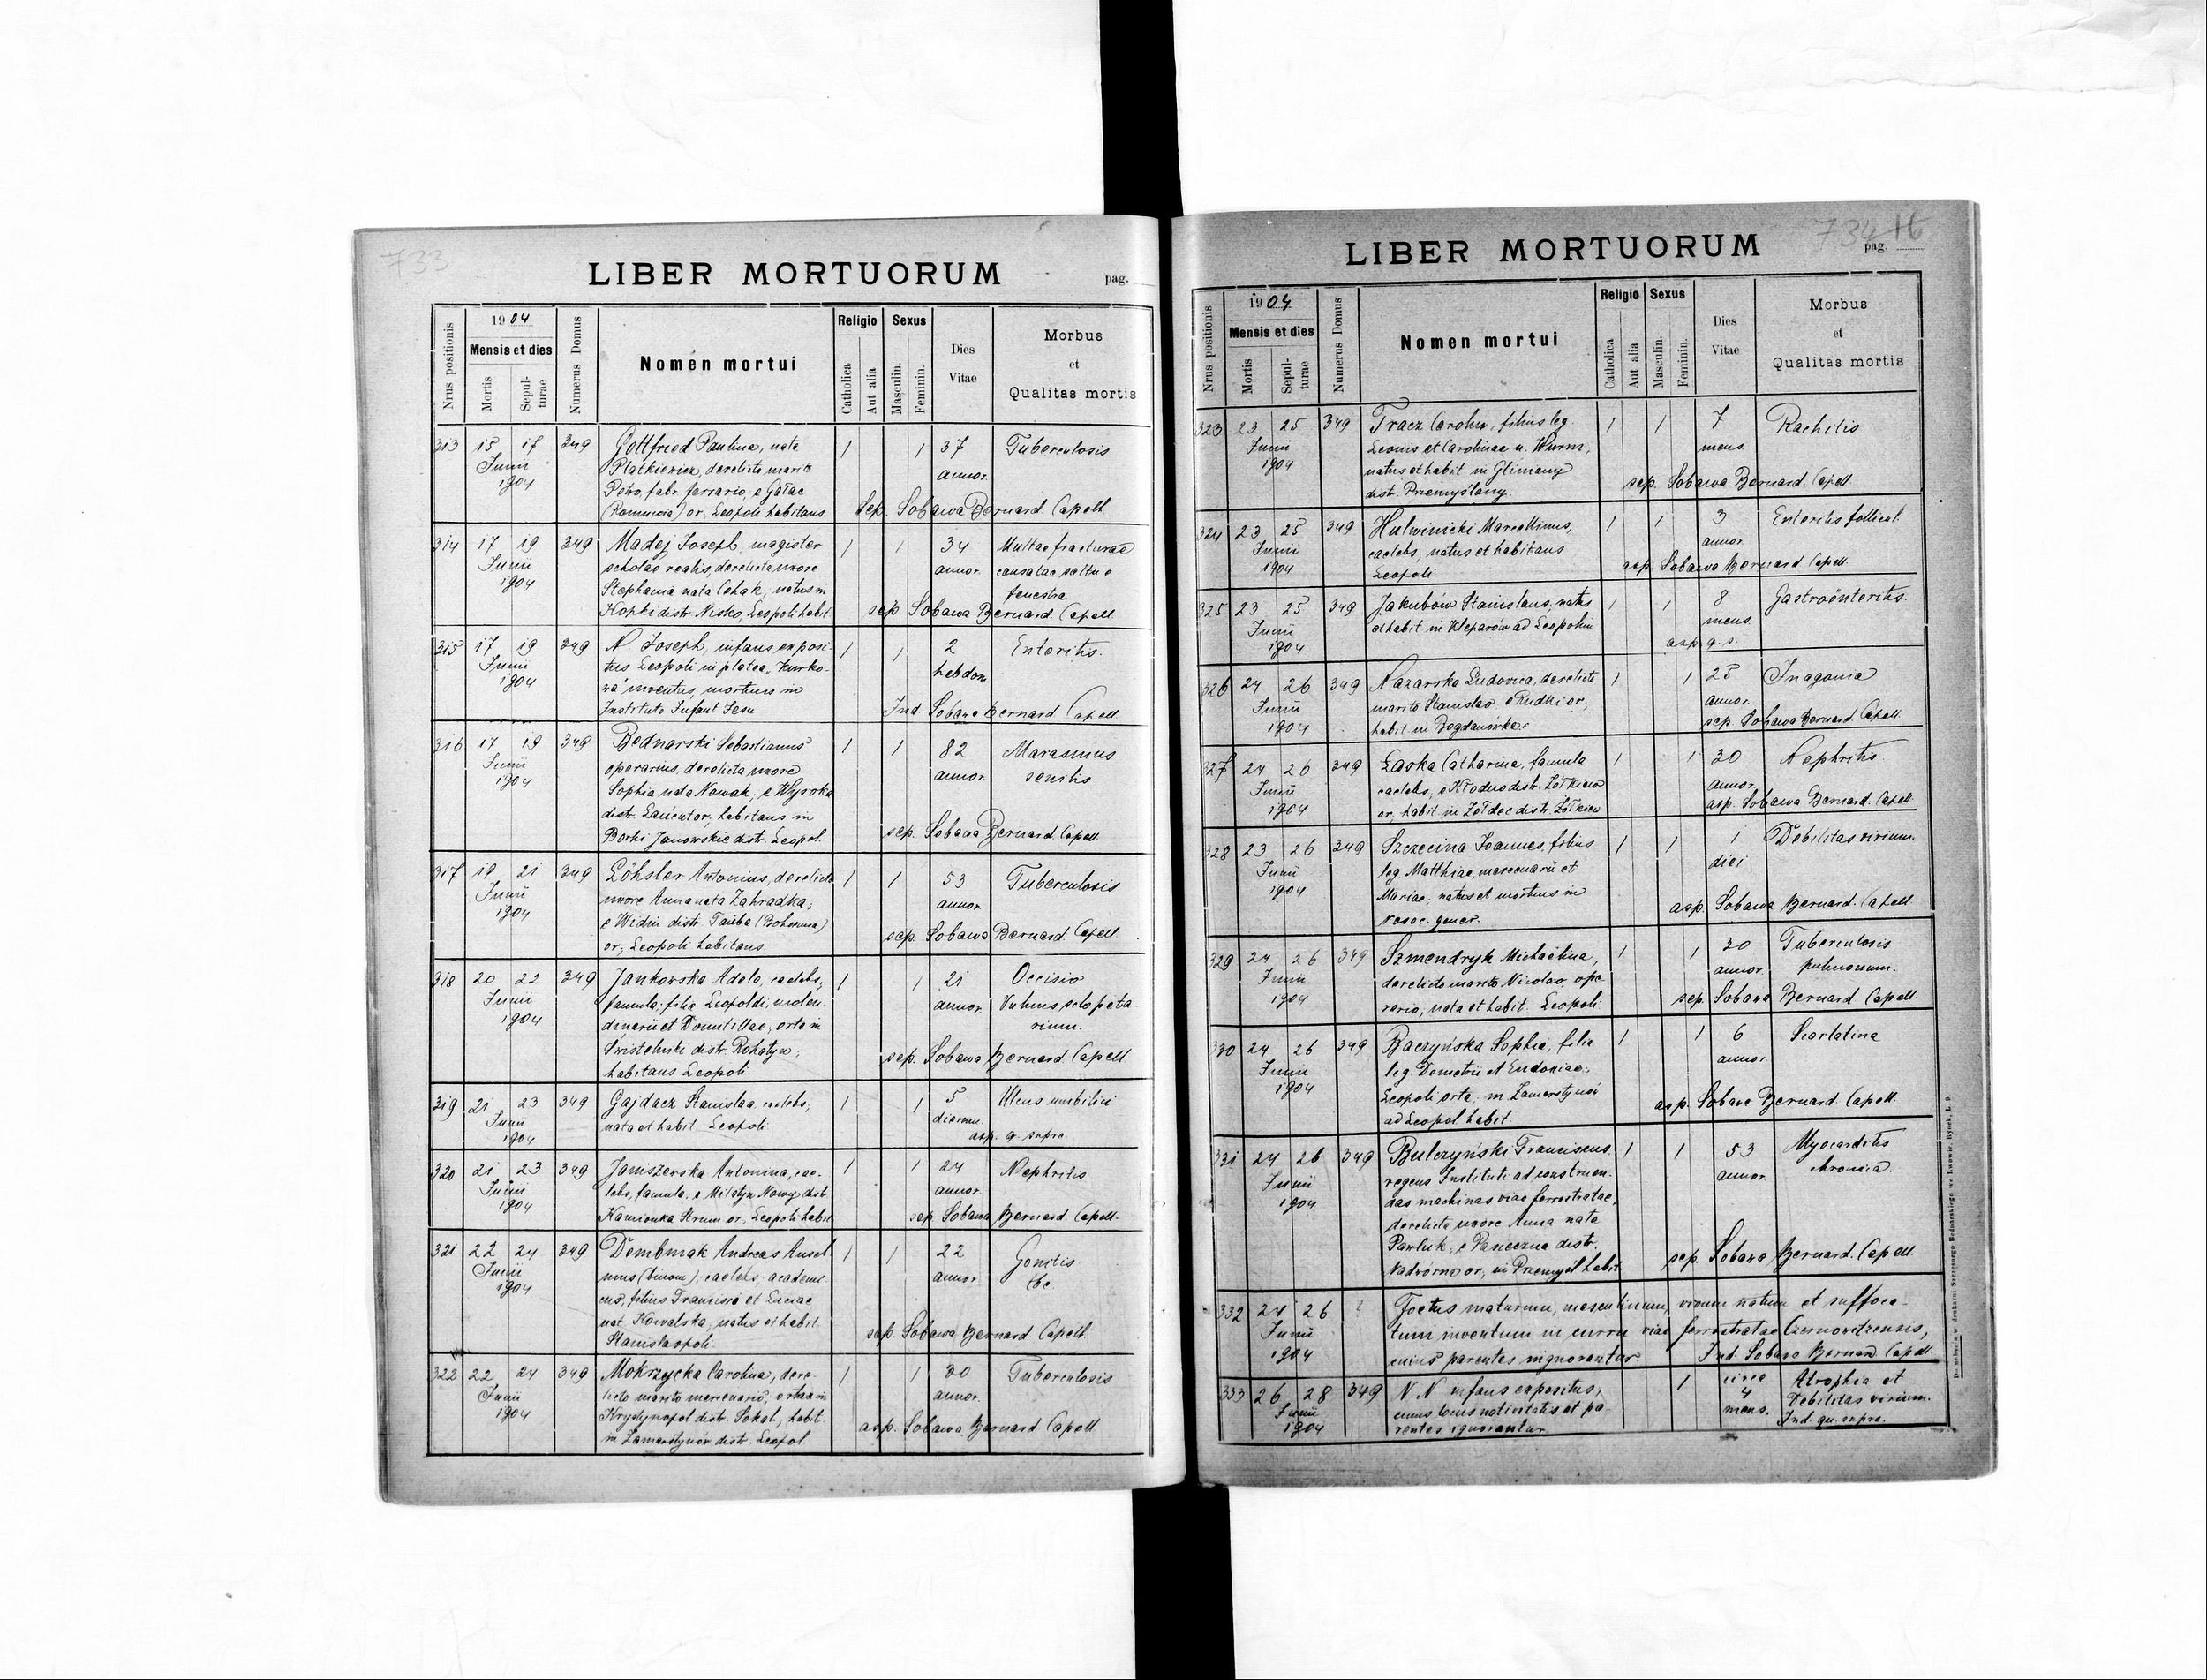 733
LIBER MORTUORUM
pag.
Nrus positionis
1904
Mensis et dies
Mortis
Sepulturae
Numerus Domus
Nomen mortui
Religio
Catholica
Aut alia
Sexus
Masculin.
Feminin.
Dies
Vitae
Morbus
et
Qualitas mortis
313 15 17 349 Gottfried Paulina, nata 1 1 37 Tuberculosis
Junii Płatkiewicz, derelicta marito annor.
1904 Petro, fabr. ferrario, e Gałac
(Romunia) or. Leopoli habitans Sep. Sobawa Bernard Capell
314 17 19 349 Madej Joseph, magister 1 1 34 Multae fracturae
Junii scholae realis, derelicta uxore annor. causatae saltu e
1904 Stephania nata Cehak, natus in fenestra
Kopki distr. Nisko, Leopoli habit. sep. Sobawa Bernard. Capell
315 17 19 349 N. Joseph, infans exposi- 1 1 2 Enteritis.
Junii tus Leopoli in platea "Kurko- hebdom
1904 wa" inventus, mortuus in
Instituto Infant. Jesu Ind. Sobawa Bernard Capell
316 17 19 349 Bednarski Sebastianus 1 1 82 Marasmus
Junii operarius, derelicta uxore annor. senilis
1904 Sophia nata Nowak, e Wysoka
distr. Łańcut or, habitans in
Borki Janowskie distr. Leopol. sep. Sobawa Bernard Capell.
317 19 21 349 Löhsler Antonius, derelicta 1 1 53 Tuberculosis
Junii uxore Anna nata Zahradka, annor.
1904 e Widim distr. Tauba (Bohemia)
or; Leopoli habitans sep. Sobawa Bernard. Capell.
318 20 22 349 Jankowska Adela, caelebs, 1 1 21 Occisio
Junii famula, filia Leopoldi, molen- annor. Vulnus sclopeta-
1904 dinarii et Domitillae, orta in rium.
Świstelniki distr. Rohatyn,
habitans Leopoli. sep. Sobawa Bernard Capell
319 21 23 349 Gajdacz Stanislaa, caelebs, 1 1 5 Ulcus umbilici
Junii nata et habit. Leopoli dierum.
1904 asp. q. supra
320 21 23 349 Janiszewska Antonina, cae- 1 1 24 Nephritis
Junii lebs, famula, e Milatyn Nowy dist. annor.
1904 Kamionka Strum or, Leopoli habit sep. Sobawa Bernard. Capell.
321 22 24 349 Dembniak Andreas Ansel- 1 1 22 Gonitis
Junii mus (binom), caelebs, academi- annor. tbc
1904 cus, filius Francisci et Luciae
nat. Kowalska, natus et habit.
Stanislaopoli. sep. Sobawa Bernard Capell
322 22 24 349 Mokrzycka Carolina, dere- 1 1 20 Tuberculosis
Junii licta marito mercenario, orta in annor.
1904 Krystynopol distr. Sokal, habit.
in Zamarstynów distr. Leopol asp. Sobawa Bernard Capell
734 16
LIBER MORTUORUM
pag.
Nrus positionis
1904
Mensis et dies
Mortis
Sepulturae
Numerus Domus
Nomen mortui
Religio
Catholica
Aut alia
Sexus
Masculin.
Feminin.
Dies
Vitae
Morbus
et
Qualitas mortis
323 23 25 349 Tracz Carolus, filius leg. 1 1 7 Rachitis
Junii Leonis et Carolinae n. Wurm, mens.
1904 natus et habit. in Glimany
distr. Przemyślany. sep. Sobawa Bernard. Capell
324 23 25 349 Hulwinicki Marcellinus, 1 1 3 Enteritis follicul.
Junii caelebs, natus et habitans annor.
1904 Leopoli asp. Sobawa Bernard Capell.
325 23 25 349 Jakubów Stanislaus, natus 1 1 8 Gastroënteritis.
Junii et habit in Kleparów ad Leopolim mens.
1904 asp. q. s.
326 24 26 349 Nazarska Ludovica, derelicta 1 1 25 Inagonia
Junii marito Stanislao, e Rudki or, annor.
1904 habit in Bogdanówka. sep. Sobawa Bernard Capell
327 24 26 349 Laska Catharina, famula 1 1 30 Nephritis
Junii caelebs, e Kłodno distr. Żółkiew annor.
1904 or, habit in Żółdec distr. Żółkiew asp. Sobawa Bernard. Capell
328 23 26 349 Szczecina Joannes, filius 1 1 1 Debilitas virium.
Junii leg. Matthiae, mercenarii et diei
1904 Mariae, natus et mortuus in
nosoc. gener. asp. Sobawa Bernard. Capell
329 24 26 349 Szmendryk Michaëlina, 1 1 30 Tuberculosis
Junii derelicta marito Nicolao, ope- annor. pulmonum.
1904 rario, nata et habit. Leopoli sep. Sobawa Bernard Capell.
330 24 26 349 Baczyńska Sophia, filia 1 1 6 Scarlatina
Junii leg. Demetrii et Eudoxiae; annor.
1904 Leopoli orta, in Zamarstynów
ad Leopol habit. asp. Sobawa Bernard. Capell.
331 24 26 349 Bulczyński Franciscus. 1 1 53 Myocarditis
Junii regens Instituti ad construen- annor. chronica.
1904 das machinas viae ferrostratae,
derelicta uxore Anna nata
Pawluk, e Pasieczna distr.
Nadwórna or, in Przemyśl habit. sep. Sobawa Bernard. Capell
332 24 26 ? Foetus maturum, masculinum, vivum natum et suffoca-
Junii tum inventum in curru viae ferrostratae Czernowitzensis,
1904 cuius parentes ingnorantur. Ind. Sobawa Bernard. Capell.
333 26 28 349 N. N. infans expositus, 1 circa Atrophia et
Junii cuius locus nativitatis et pa- 4 Debilitas virium.
1904 rentes ignorantur mens. Ind. qu. supra.